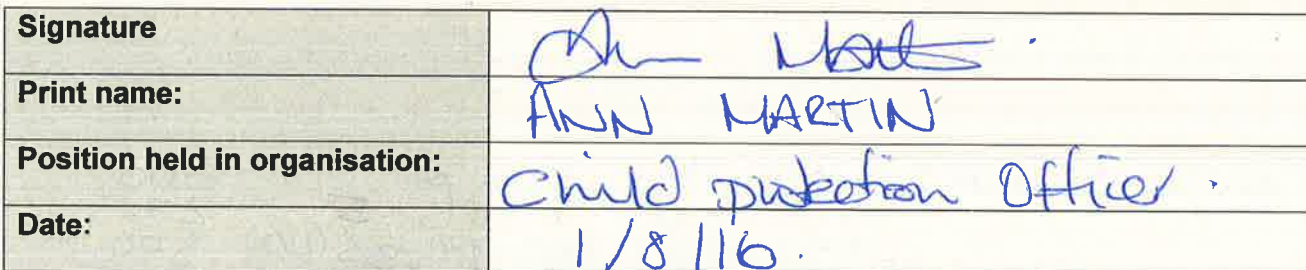 Signature Ann Martin.
Print name: ANN MARTIN
Position held in organisation: Child protection Officer.
Date: 1/8/16.